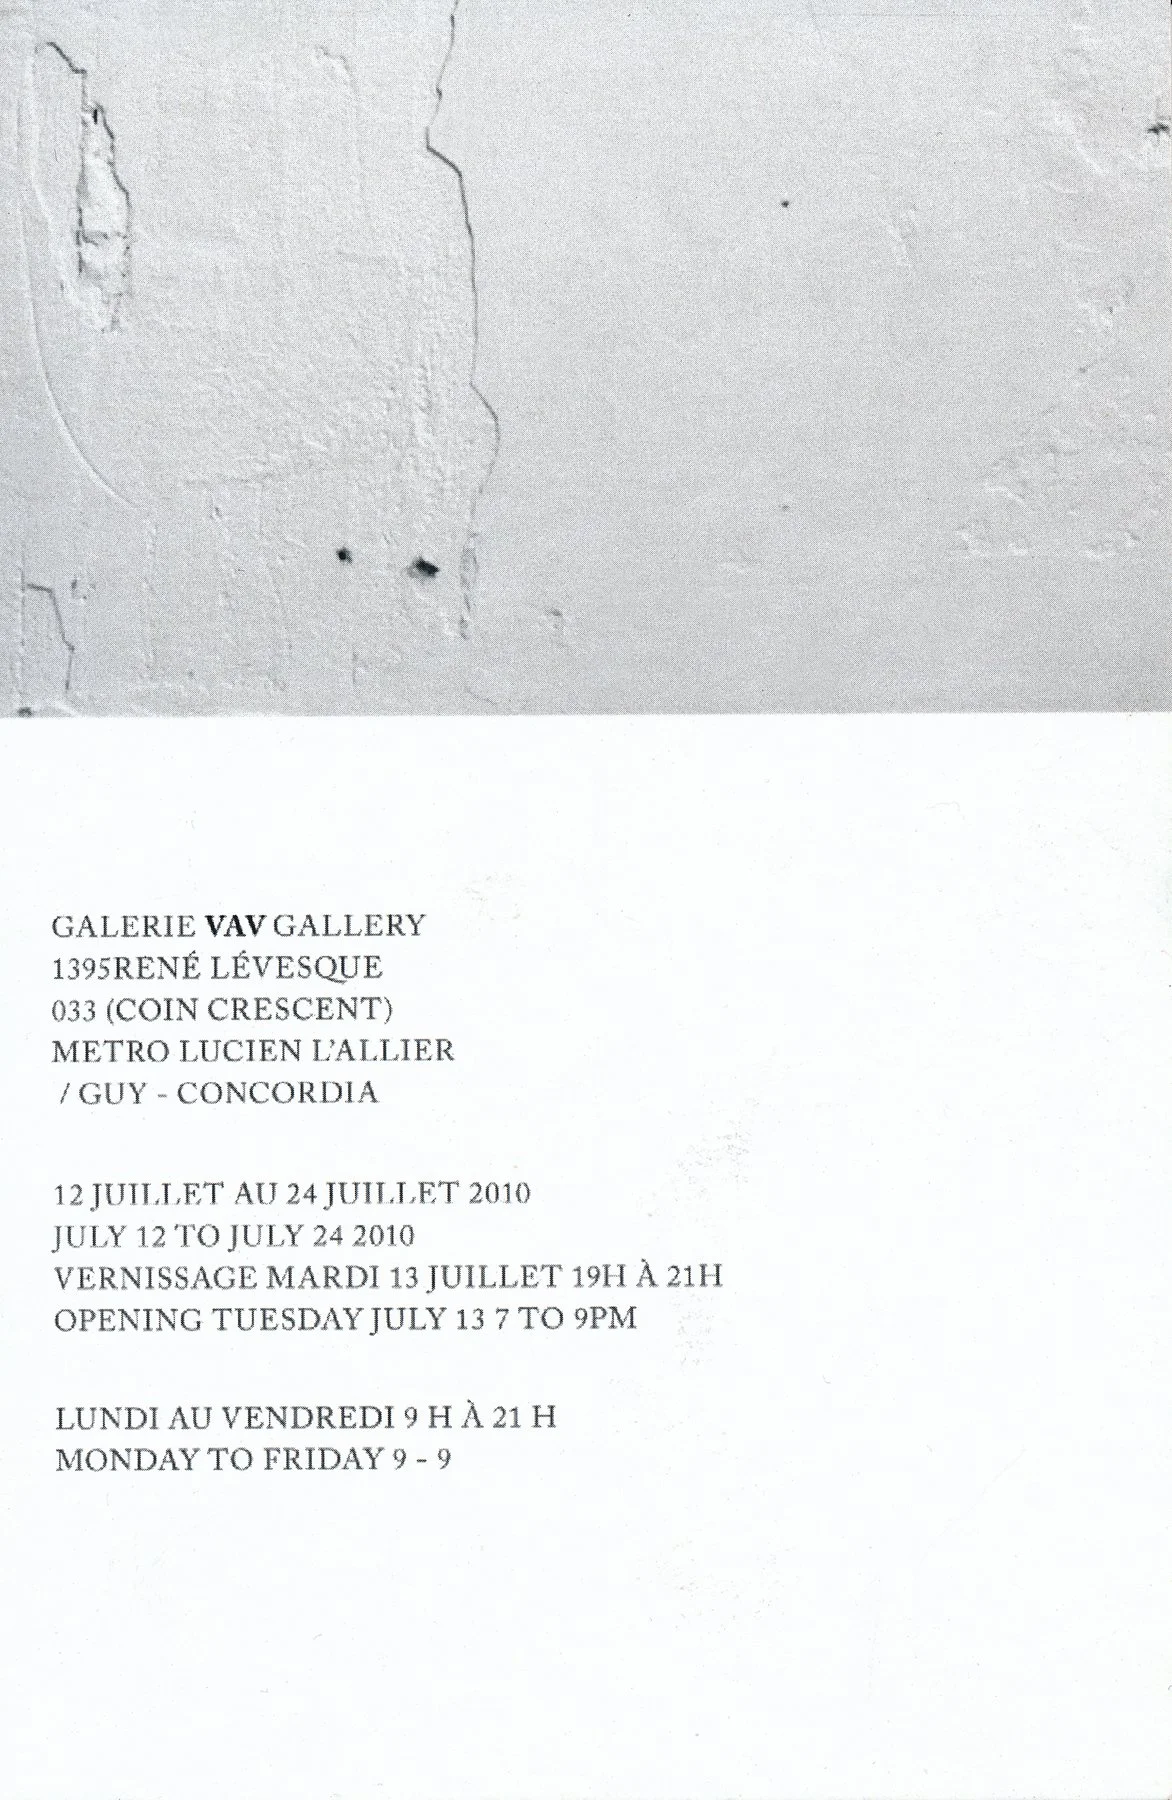 GALERIE VAV GALLERY
1395RENÉ LÉVESQUE
033 (COIN CRESCENT)
METRO LUCIEN L'ALLIER
/ GUY - CONCORDIA
12 JUILLET AU 24 JUILLET 2010
JULY 12 TO JULY 24 2010
VERNISSAGE MARDI 13 JUILLET 19H À 21H
OPENING TUESDAY JULY 13 7 TO 9PM
LUNDI AU VENDREDI 9 H À 21 H
MONDAY TO FRIDAY 9 - 9